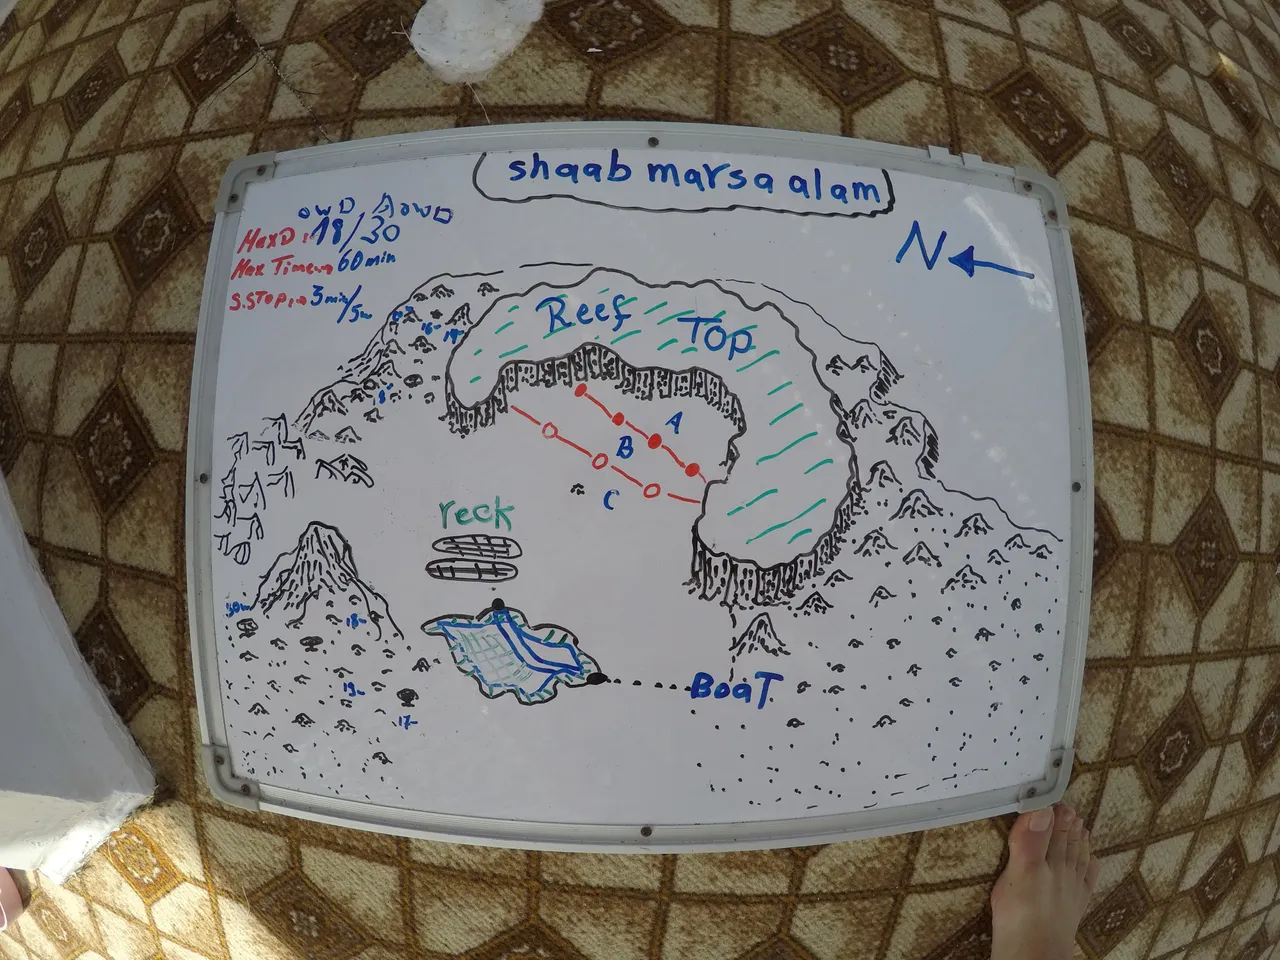 shaab marsa alam
OWD AOWD
Max D: 18/30
Max Time 60 min
S.STOP: 3 min/5m
N
Reef Top
A
B
C
reck
30m
18-
19-
17-
BoaT